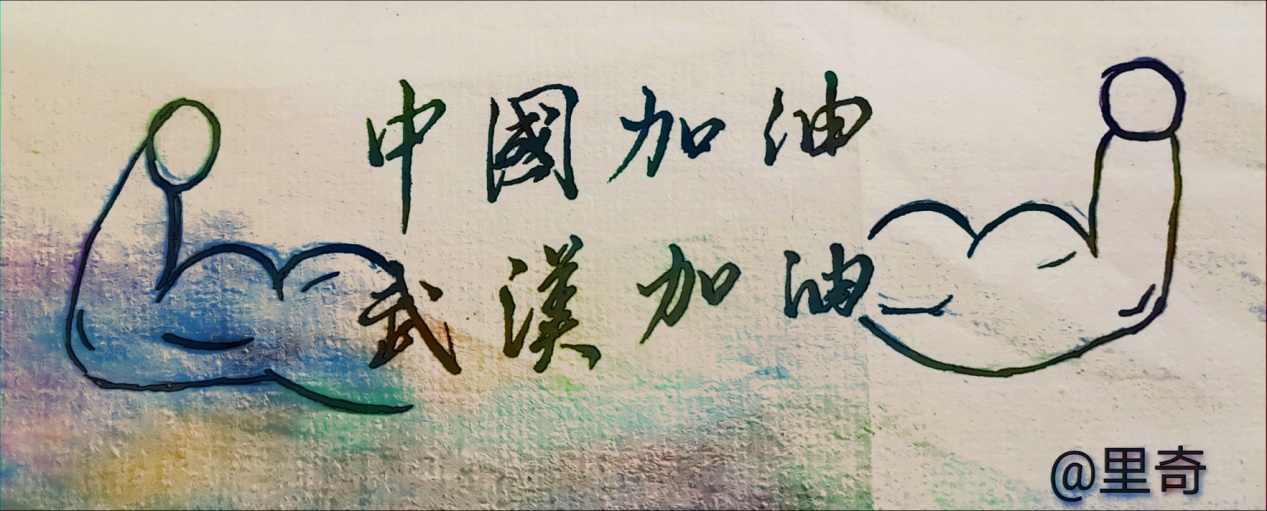 中國加油
武漢加油
@里奇